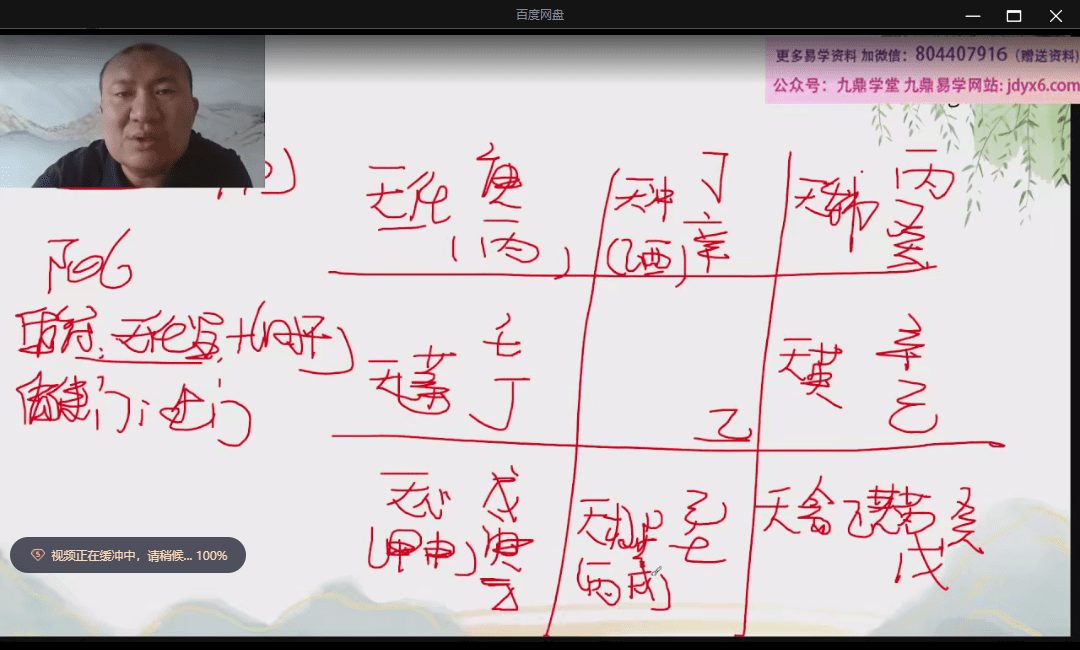 百度网盘
更多易学资料 加微信：804407916（赠送资料）
公众号：九鼎学堂 九鼎易学网站：jdyx6.com
天任 庚
(丙)
天冲 丁
(乙酉) 辛
天辅 丙
癸
阳6
值符：天任
门：生门
天蓬 壬
丁
乙
天英 辛
己
天心 戊
(甲申) 庚
天柱 己
壬
(丙戌)
天禽 乙 天芮 癸
戊
视频正在缓冲中，请稍候... 100%